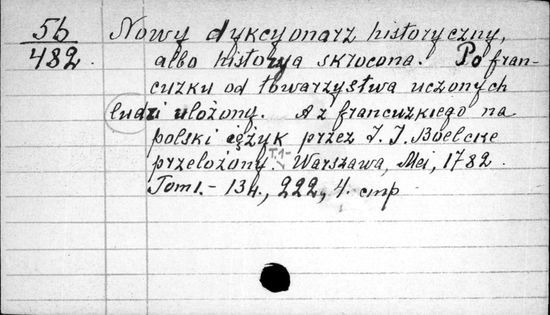 5б
482.
Nowy dykcyonarz historyczny,
albo historya skrocona. Po fran-
cuzku od towarzystwa uczonych
ludzi ulożony. A z francuzkiego na
polski ęzyk przez J. J. Boelcke
przelożony. T. 1- Warszawa, Mei, 1782.
Tom 1. - 13 н., 222, 4. стр